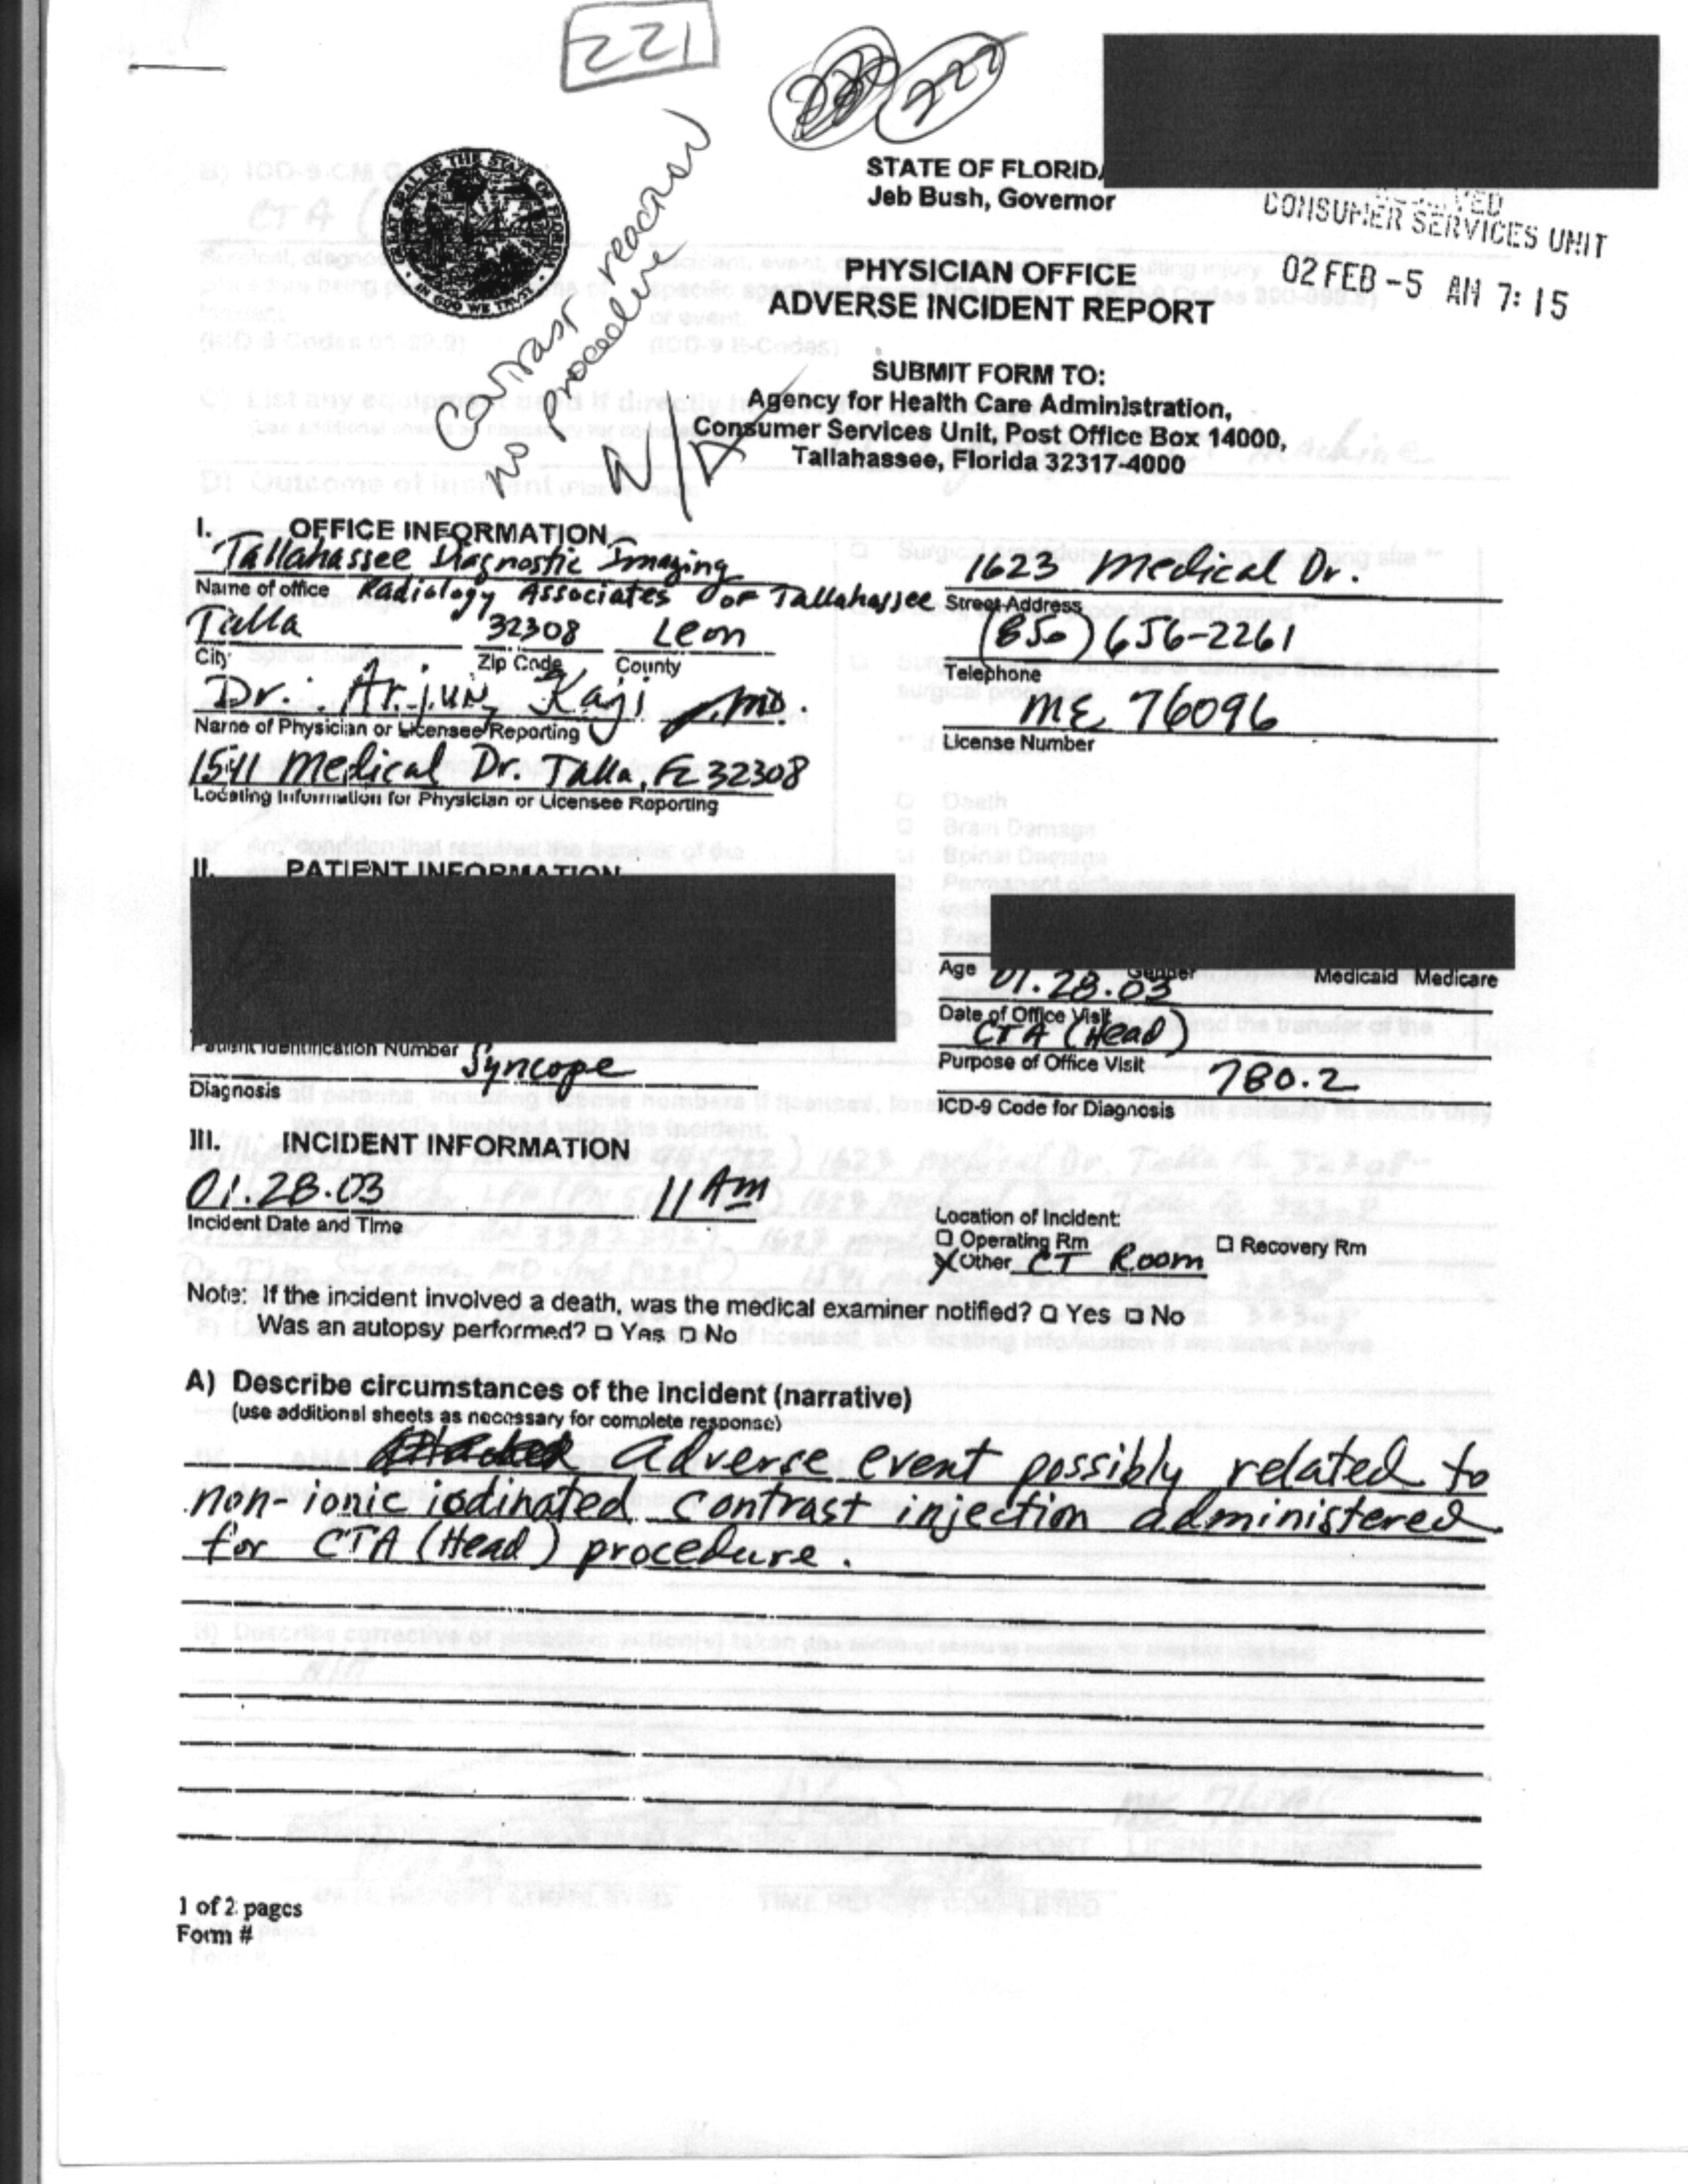 221
222
contrast reaction
no procedure
N/A
STATE OF FLORIDA
Jeb Bush, Governor
CONSUMER SERVICES UNIT
02 FEB -5 AM 7:15
PHYSICIAN OFFICE
ADVERSE INCIDENT REPORT
SUBMIT FORM TO:
Agency for Health Care Administration,
Consumer Services Unit, Post Office Box 14000,
Tallahassee, Florida 32317-4000
I. OFFICE INFORMATION
Tallahassee Diagnostic Imaging
Name of office Radiology Associates of Tallahassee
1623 Medical Dr.
Street Address
Talla 32308 Leon
City Zip Code County
(850) 656-2261
Telephone
Dr. Arjun Kaji MD.
Name of Physician or Licensee Reporting
ME 76096
License Number
1541 Medical Dr. Talla, FL 32308
Locating Information for Physician or Licensee Reporting
II. PATIENT INFORMATION
Age Gender Medicaid Medicare
01.28.03
Date of Office Visit
CTA (Head)
Purpose of Office Visit
Patient Identification Number
Syncope
Diagnosis
780.2
ICD-9 Code for Diagnosis
III. INCIDENT INFORMATION
01.28.03 11 Am
Incident Date and Time
Location of Incident:
☐ Operating Rm ☐ Recovery Rm
X Other CT Room
Note: If the incident involved a death, was the medical examiner notified? ☐ Yes ☐ No
Was an autopsy performed? ☐ Yes ☐ No
A) Describe circumstances of the incident (narrative)
(use additional sheets as necessary for complete response)
adverse event possibly related to
non-ionic iodinated contrast injection administered
for CTA (Head) procedure.
1 of 2 pages
Form #